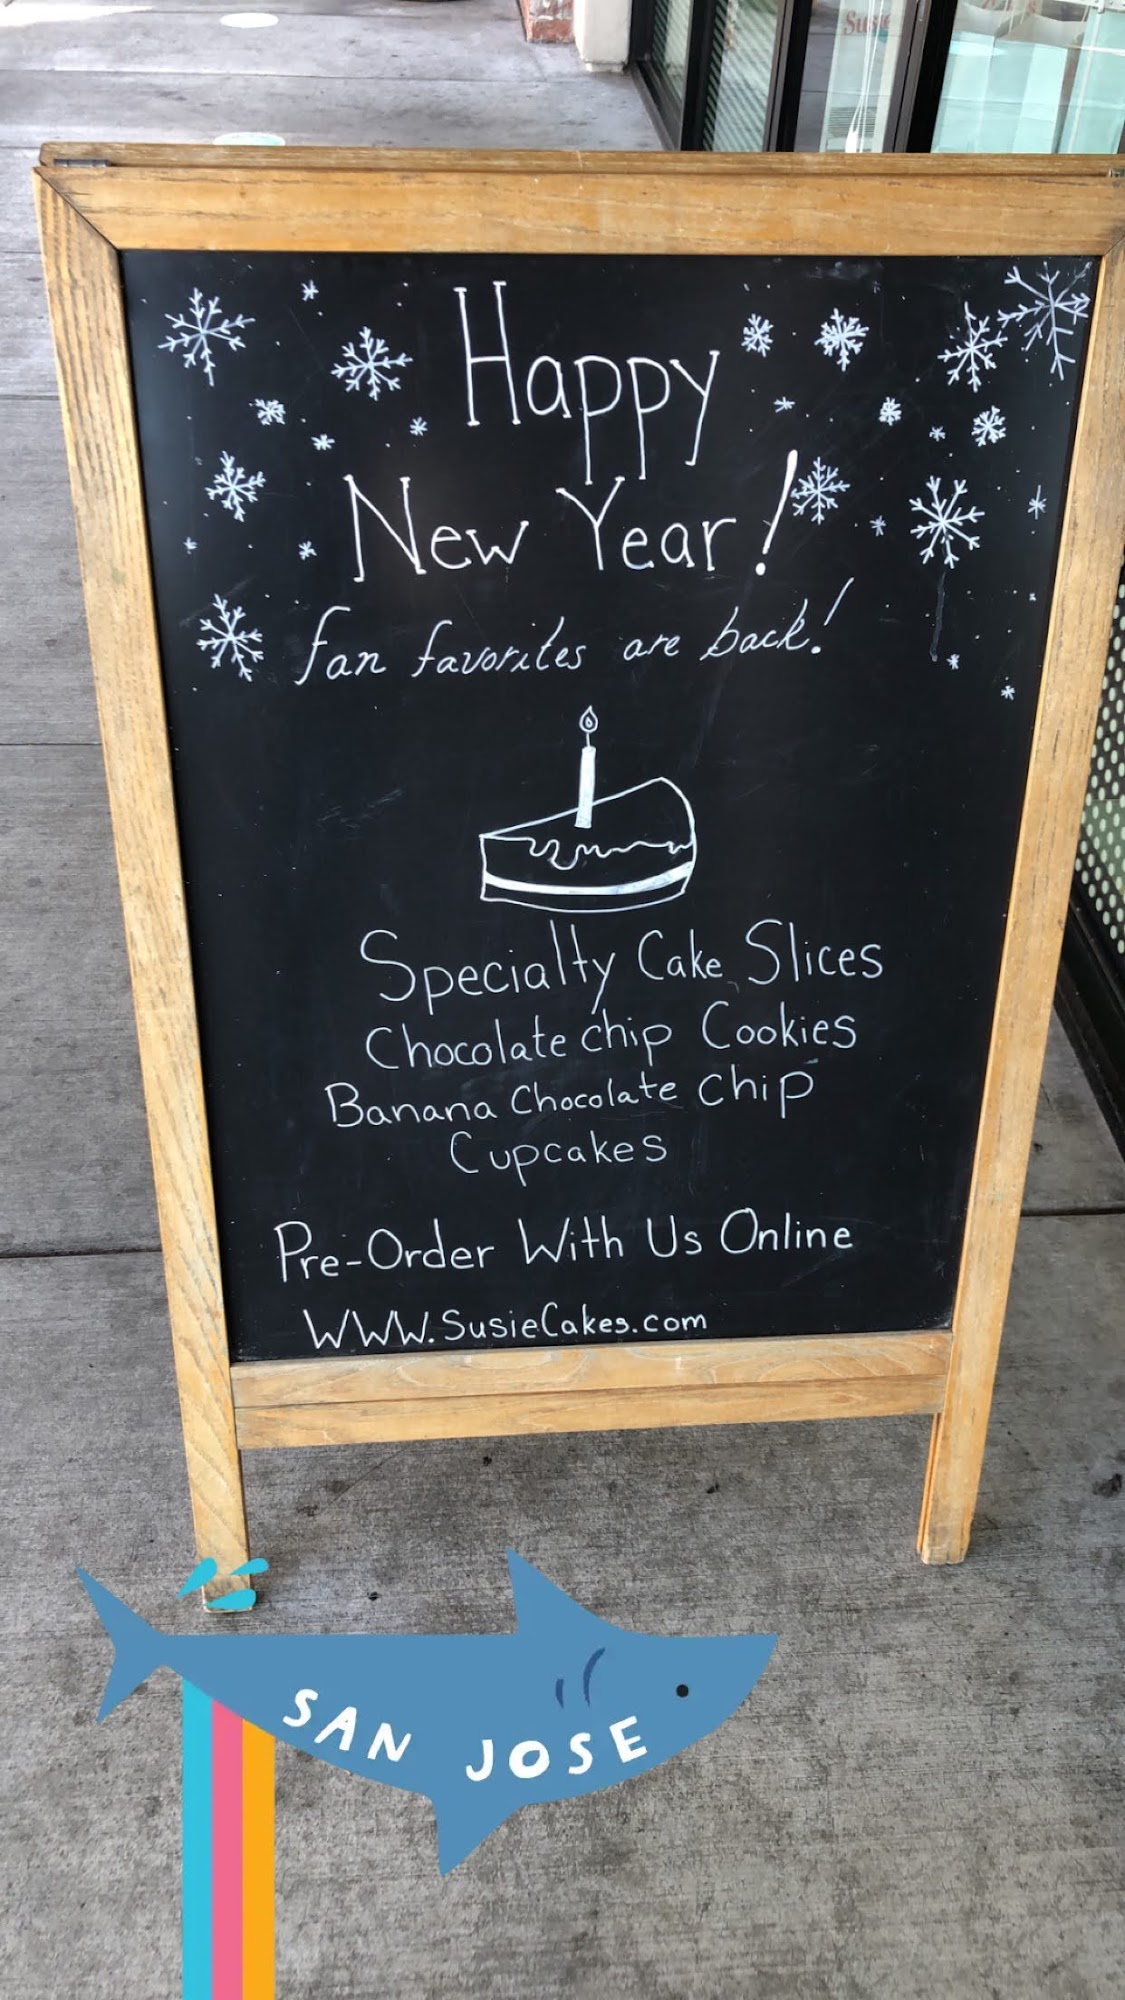 Susie
Happy
New Year!
fan favorites are back!
Specialty Cake Slices
Chocolate chip Cookies
Banana Chocolate chip
Cupcakes
Pre-Order With Us Online
WWW.SusieCakes.com
SAN JOSE